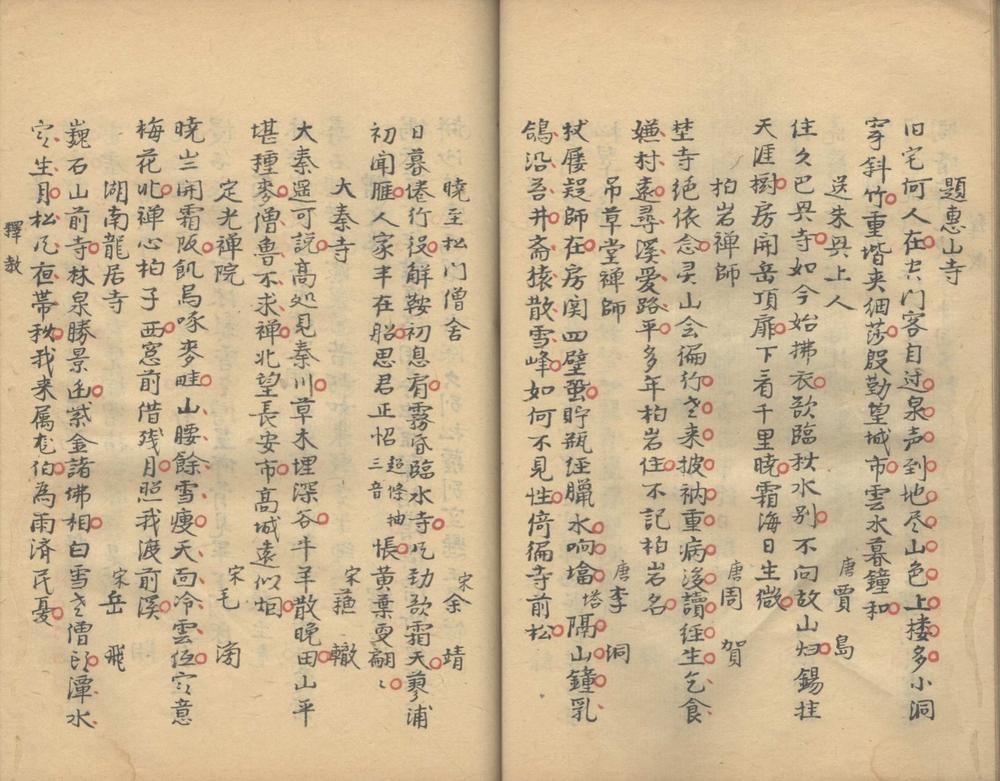 題惠山寺
旧宅何人在空门客自过泉声到地尽山色上楼多小洞
穿斜竹重堦夹细莎殷勤望城市雲水暮鐘和
送朱兴上人　唐 賈島
住久巴兴寺如今始拂衣欲臨秋水别不向故山归锡挂
天涯樹房開岳頂扉下看千里曉霜海日生微
柏岩禅師　唐 周賀
埜寺绝依念灵山会徧行老来披衲重病後讀经生乞食
嫌村遠尋溪爱路平多年柏岩住不記柏岩名
吊草堂禅師　唐 李洞
杖屨疑師在房関四壁蛩貯瓶经臘水响墖塔隔山鐘乳
鴿沿吾井斋猿散雪峰如何不見性倚徧寺前松
曉至松门僧舍　宋 余靖
日暮倦行役解鞍初息肩霧昏臨水寺风劲欲霜天蓼浦
初聞雁人家半在船思君正怊超條抽三音悵黄葉更翩々
大秦寺　宋 蘓轍
大秦遥可說高処見秦川草木埋深谷牛羊散晚田山平
堪種麥僧魯不求禅北望長安市高城遠似烟
定光禅院　宋 毛滂
曉岦開霜阪飢烏啄麥畦山腰餘雪瘦天面冷雲低定意
梅花北禅心柏子西窓前借残月照我渡前溪
湖南龍居寺　宋 岳飛
巍石山前寺林泉勝景幽紫金諸佛相白雪老僧头潭水
寒生月松风夜带秋我来属龙伯為雨済民憂
釋教